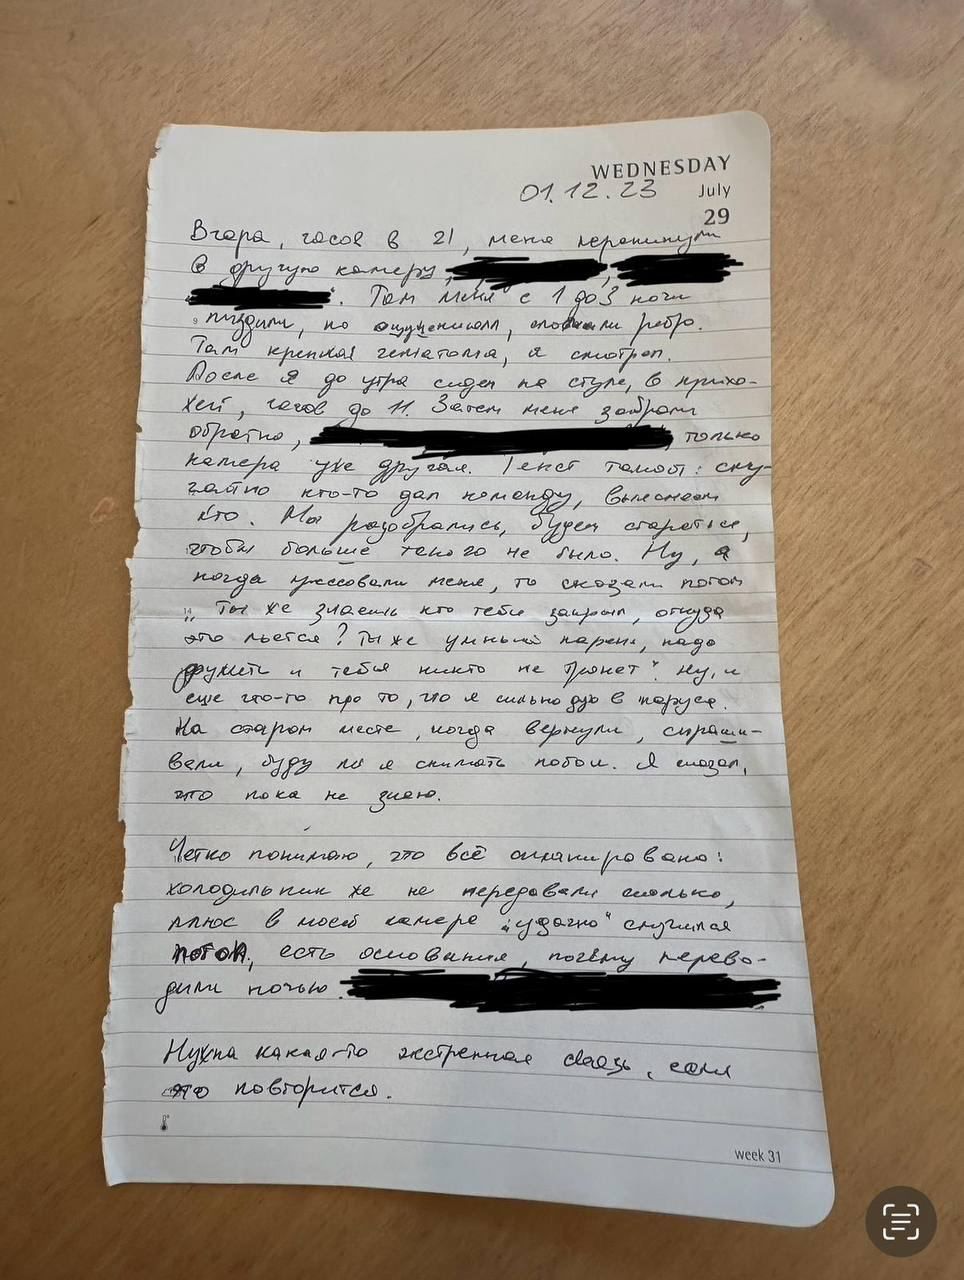 WEDNESDAY
01.12.23 July
29
Вчера, часов в 21, меня перекинули
в другую камеру,
". Там меня с 1 до 3 ночи
9 пиздили, по ощущениям, сломали ребро.
Там крепкая гематома, я смотрел.
После я до утра сидел на стуле, в прихо-
жей, часов до 11. Затем меня забрали
обратно, только
камера уже другая. Текст такой: слу-
чайно кто-то дал команду, выясняем
кто. Мы разобрались, будем стараться,
чтобы больше такого не было. Ну, а
когда прессовали меня, то сказали потом
14 "Ты же знаешь кто тебя закрыл, откуда
это льется? Ты же умный парень, надо
дружить и тебя никто не тронет". Ну, и
еще что-то про то, что я сильно дую в паруса.
На старом месте, когда вернули, спраши-
вали, буду ли я снимать побои. Я сказал,
что пока не знаю.
Четко понимаю, что всё спланировано:
холодильник же не передавали сколько,
плюс в моей камере "удачно" случился
потоп, есть основания, почему перево-
дили ночью.
Нужна какая-то экстренная связь, если
это повторится.
week 31